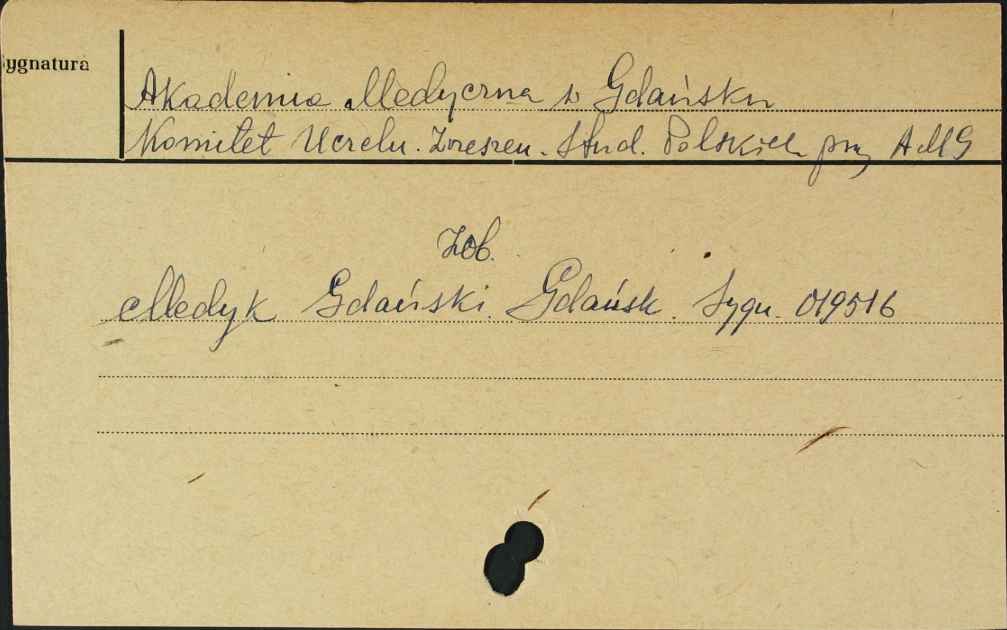 Sygnatura
Akademia Medyczna w Gdańsku
Komitet Uczeln. Zrzeszen. Stud. Polskich przy AMG
Zob.
Medyk Gdański. Gdańsk. Sygn. 019516